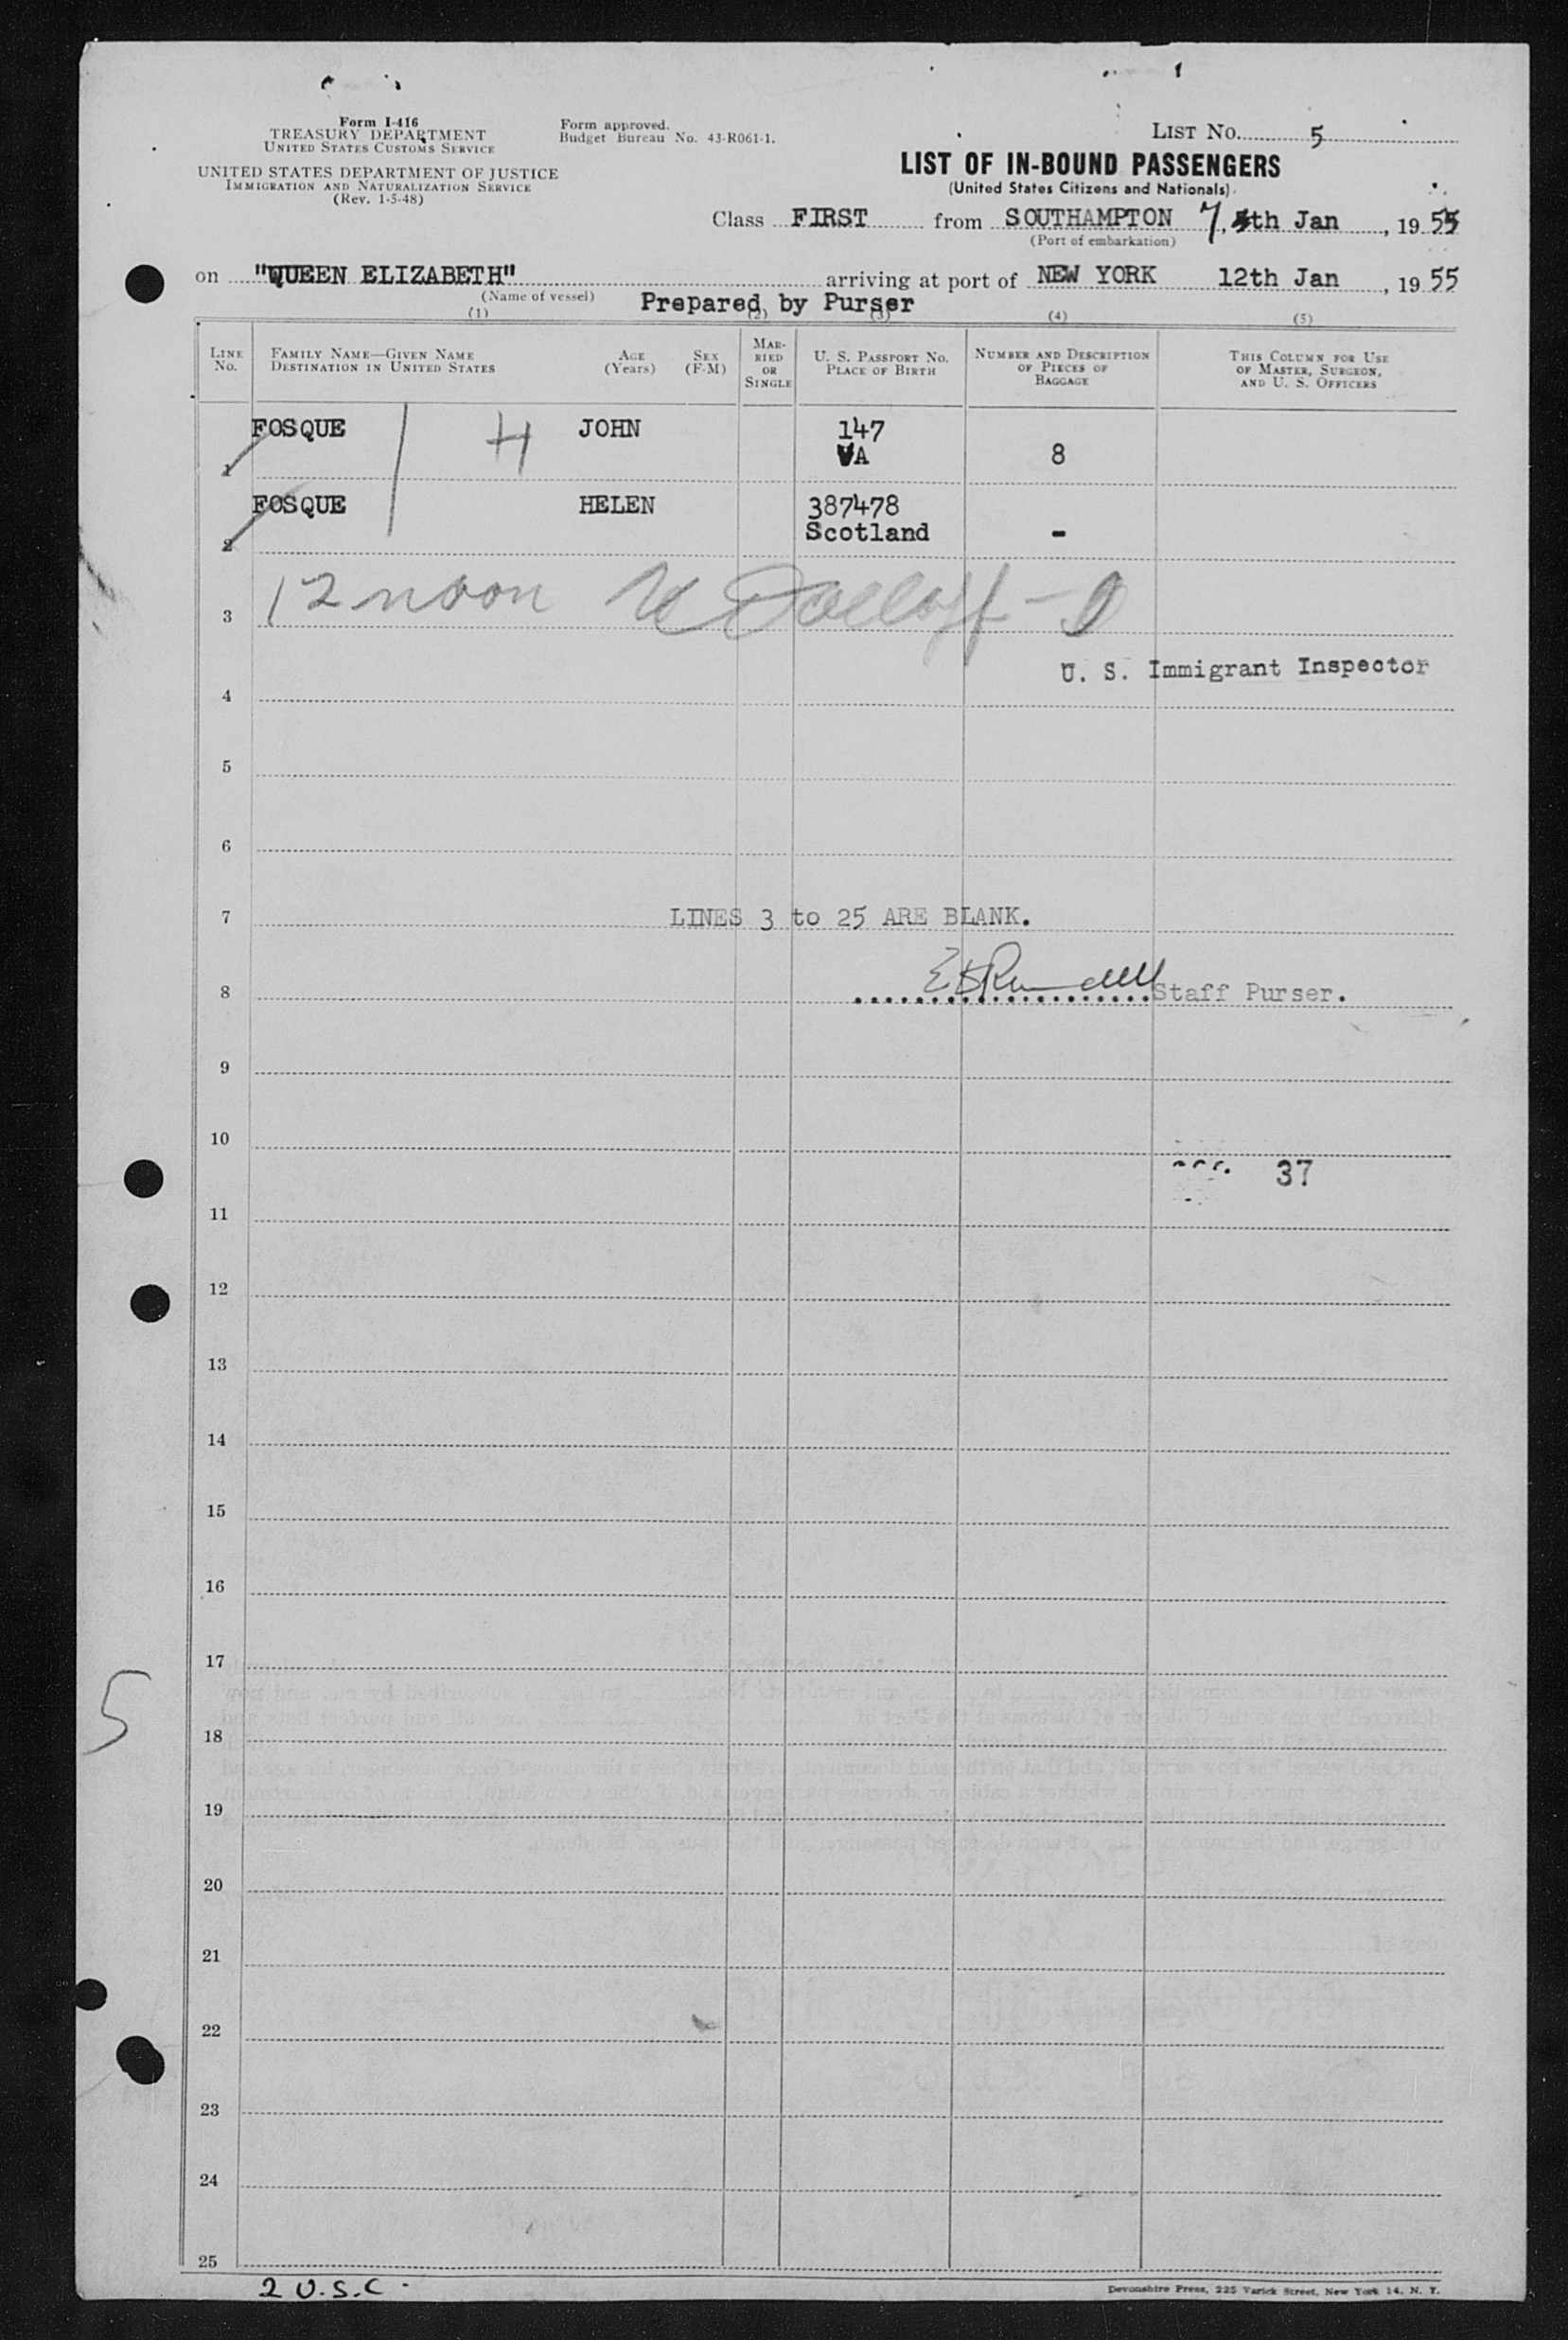 Form I-416
TREASURY DEPARTMENT
UNITED STATES CUSTOMS SERVICE
UNITED STATES DEPARTMENT OF JUSTICE
IMMIGRATION AND NATURALIZATION SERVICE
(Rev. 1-5-48)
Form approved.
Budget Bureau No. 43-R061-1.
LIST NO. 5
LIST OF IN-BOUND PASSENGERS
(United States Citizens and Nationals)
Class FIRST from SOUTHAMPTON 7, th Jan, 1955
(Port of embarkation)
on "QUEEN ELIZABETH" arriving at port of NEW YORK 12th Jan, 1955
(Name of vessel)
Prepared by Purser
(1) (2) (3) (4) (5)
LINE NO.
FAMILY NAME—GIVEN NAME
DESTINATION IN UNITED STATES
AGE (Years)
SEX (F-M)
MARRIED OR SINGLE
U. S. PASSPORT NO.
PLACE OF BIRTH
NUMBER AND DESCRIPTION OF PIECES OF BAGGAGE
THIS COLUMN FOR USE OF MASTER, SURGEON, AND U. S. OFFICERS
FOSQUE H JOHN 147
1 VA 8
FOSQUE HELEN 387478
2 Scotland -
3 12 noon
U. S. Immigrant Inspector
4
5
6
7 LINES 3 to 25 ARE BLANK.
8 Staff Purser.
9
10
37
11
12
13
14
15
16
17
5
18
19
20
21
22
23
24
25
2 U.S.C.
Devonshire Press, 225 Varick Street, New York 14, N. Y.